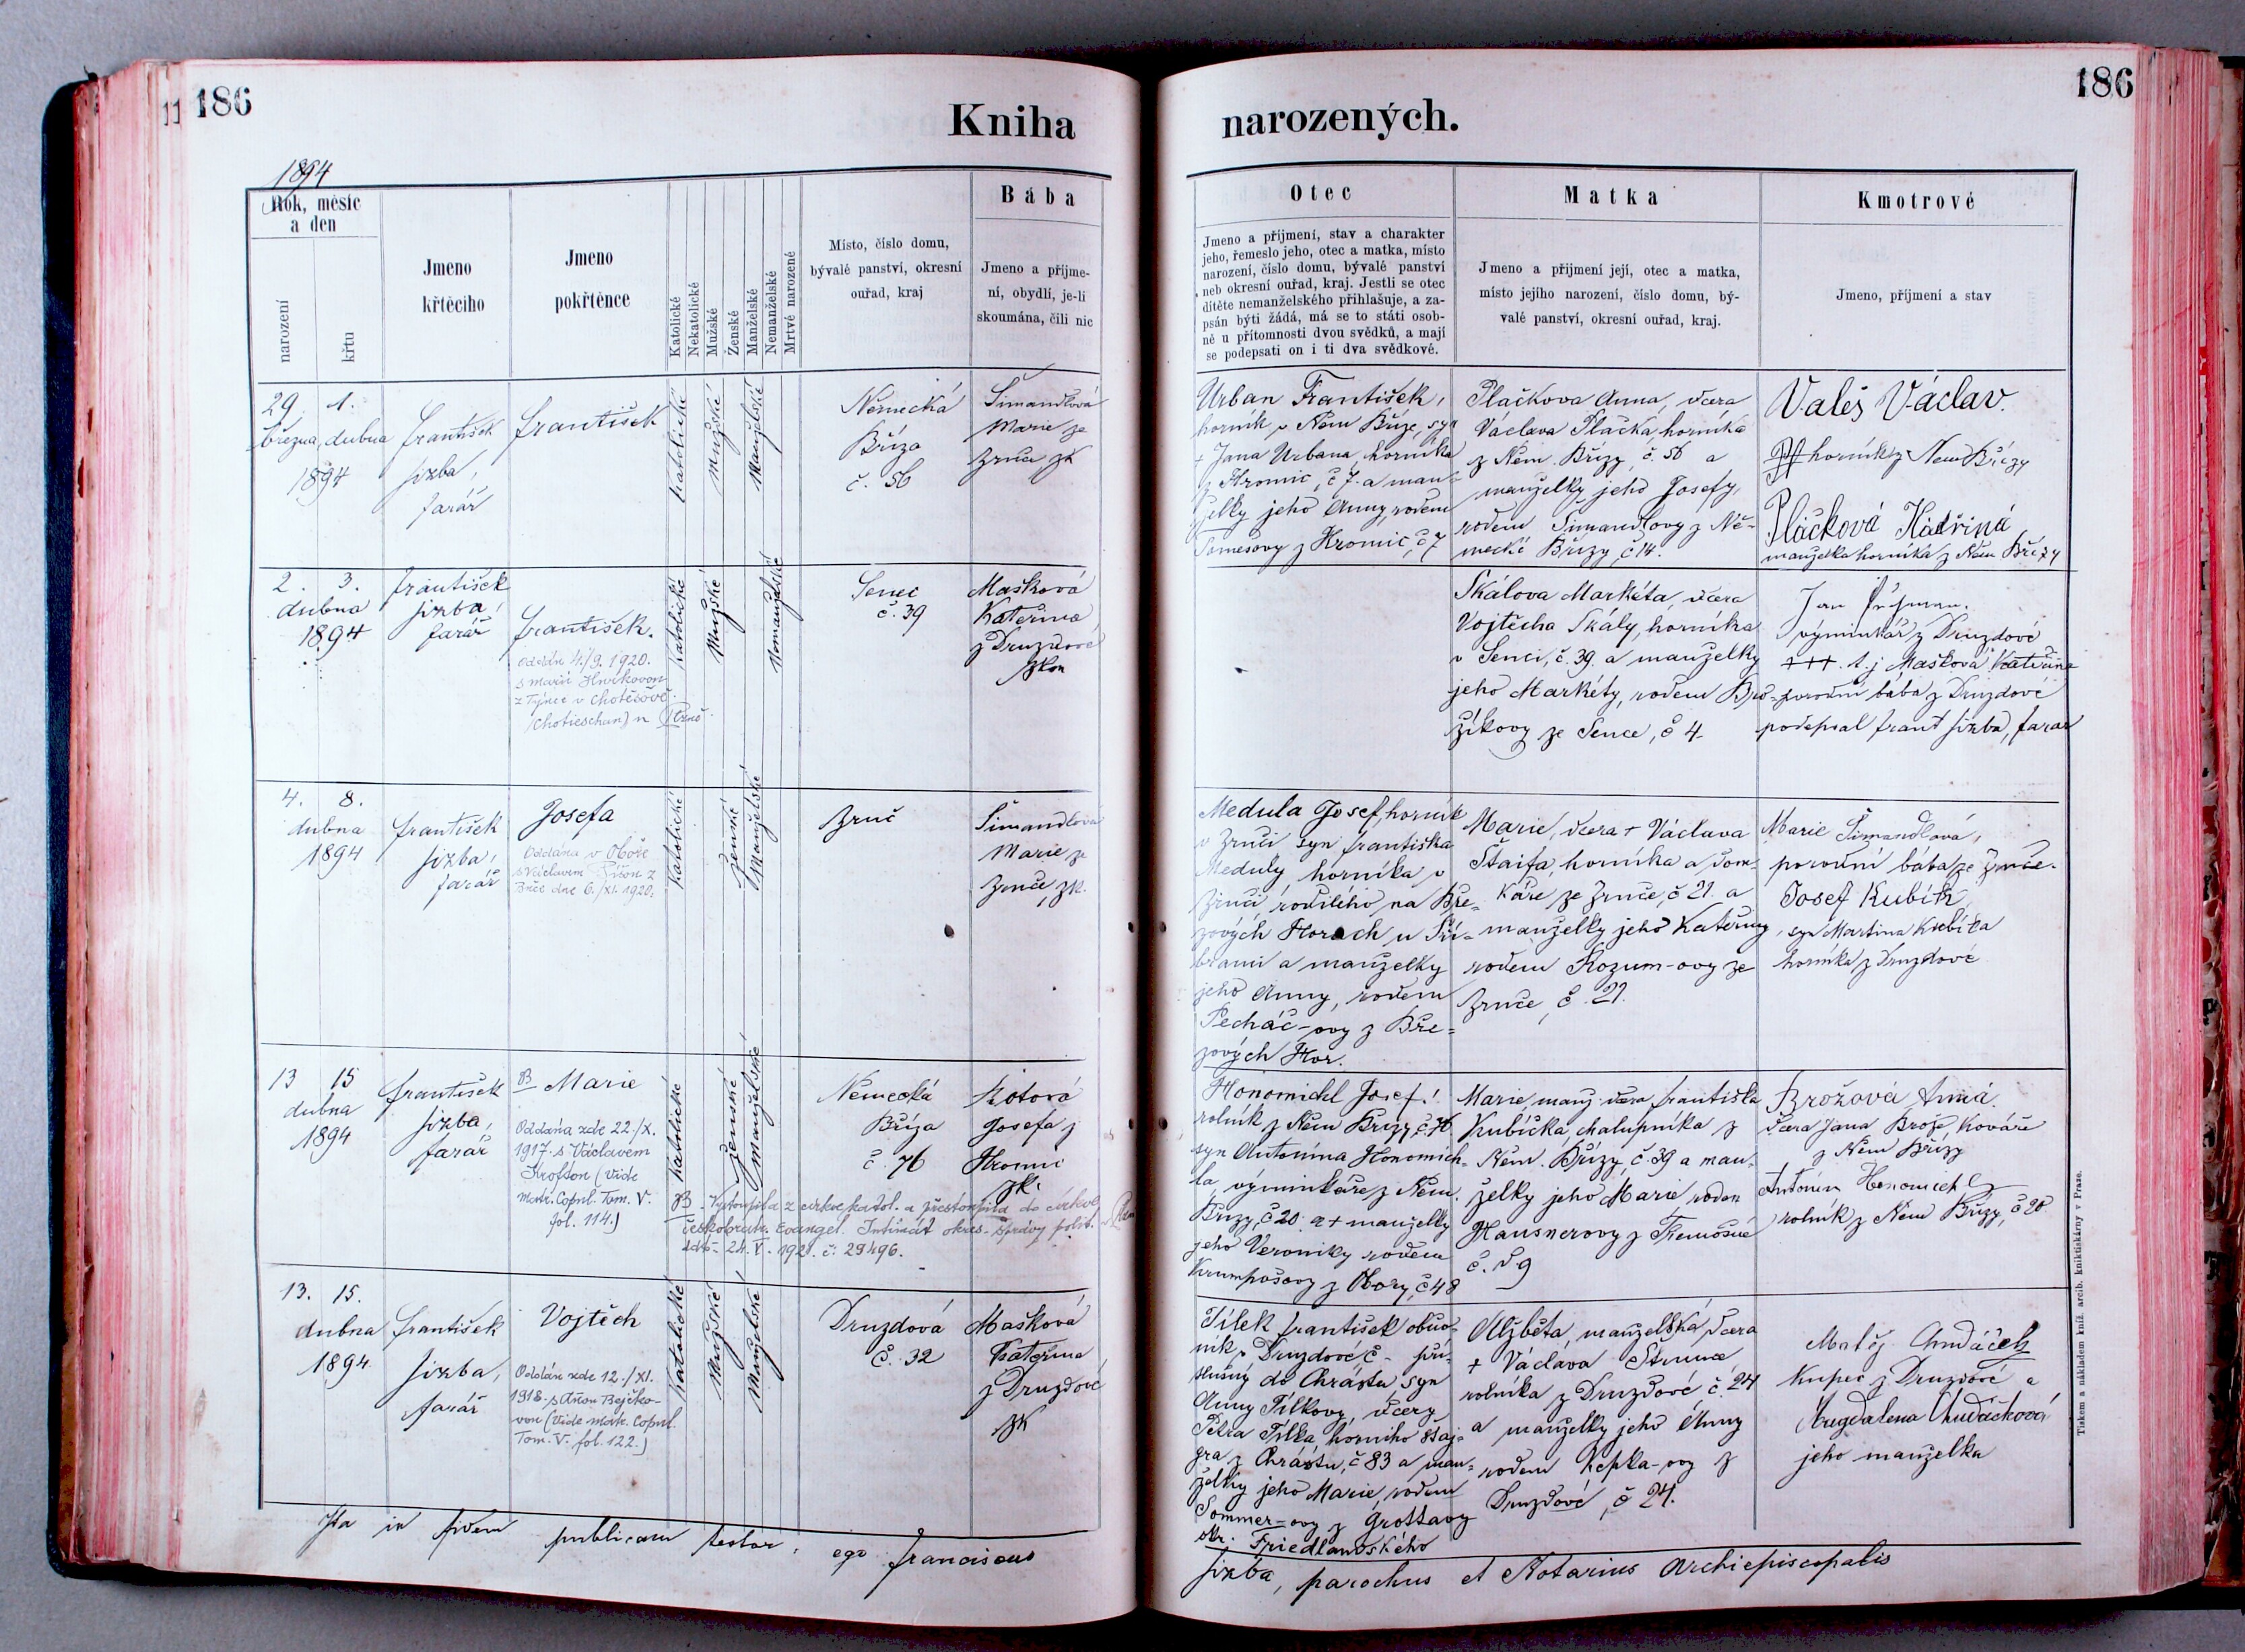 186
186
11
Kniha
narozených.
1894
Rok, měsíc
a den
narození
křtu
Jmeno
křtěcího
Jmeno
pokřtěnce
Katolické
Nekatolické
Mužské
Ženské
Manželské
Nemanželské
Mrtvě narozené
Místo, číslo domu,
bývalé panství, okresní
ouřad, kraj
Bába
Jmeno a příjme-
ní, obydlí, je-li
skoumána, čili nic
Otec
Jmeno a příjmení, stav a charakter
jeho, řemeslo jeho, otec a matka, místo
narození, číslo domu, bývalé panství
neb okresní ouřad, kraj. Jestli se otec
dítěte nemanželského přihlašuje, a za-
psán býti žádá, má se to státi osob-
ně u přítomnosti dvou svědků, a mají
se podepsati on i ti dva svědkové.
Matka
Jmeno a přijmení její, otec a matka,
místo jejího narození, číslo domu, bý-
valé panství, okresní ouřad, kraj.
Kmotrové
Jmeno, příjmení a stav
29. 1.
března dubna
1894
František
Jizba,
farář
František
Katolické
Mužské
Manželské
Německá
Bříza
č. 56
Šimandlová
Marie ze
Zruče zk
Urban František,
horník v Něm Bříze, syn
+ Jana Urbana, horníka
z Hromic, č 7. a man-
želky jeho Anny, rodem
Tomešovy z Hromic, č 7
Plačkova Anna, dcera
Václava Plačka, horníka
z Něm. Břízy, č. 56 a
manželky jeho Josefy,
rodem Šimandlovy z Ně-
mecké Břízy, č 14.
Valeš Václav.
horník z Nem Břízy
Plačková Kadřiná
manželka horníka z Něm. Břízy
2. 3.
dubna
1894
František
Jizba,
farář
František.
Oddán 4./9. 1920.
s Marií
z Týnce v Chotěšově
(Chotieschau) u Plzně.
Katolické
Mužské
Nemanželské
Senec
č. 39
Mašková
Kateřina
z Druzdové
zkou
Skálova Markéta, dcera
Vojtěcha Skály, horníka
v Senci, č. 39. a manželky
jeho Markéty, rodem Bro-
žíkovy ze Sence, č 4.
Jan
výminkář z Druzdové
+++. t. j Mašková Kateřina
porodní bába z Druzdové
podepsal Frant Jizba, farář
4. 8.
dubna
1894
František
Jizba,
farář
Josefa
Oddána v Oboře
s Václavem z
dne 6./XI. 1920.
Katolické
Ženské
Manželské
Zruč
Šimandlová
Marie ze
Zruče, zk.
Medula Josef, horník
v Zruči syn Františka
Meduly horníka v
Zruči rodilého na Bře-
zových Horách u Pří-
brami a manželky
jeho Anny, rodem
Pecháč-ovy z Bře-
zových Hor.
Marie, dcera + Václava
Štaifa, horníka a dom-
káře ze Zruče, č 21. a
manželky jeho Kateřiny,
rodem Rozum-ovy ze
Zruče, č. 21.
Marie Šimandlová,
porodní bába ze Zruče.
Josef Kubík,
syn Martina Kubíka
horníka z Druzdové
13 15
dubna
1894
František
Jizba,
farář
B Marie
Oddána zde 22./X.
1917. s Václavem
Kroftou (vide
matr. Copul. Tom. V.
fol. 114.)
Katolické
Ženské
Manželské
Německá
Bříza
č. 76
Kotová
Josefa z
Hromic
zk.
B Vystoupila z církve katol. a přestoupila do církve
českobratr. Evangel. Intimát okres. správy polit. v Plzni
ddto 24. V. 1921. č. 29496.
Honomichl Josef,
rolník z Něm Břízy, č. 76
syn Antonína Honomich-
la, výminkáře z Něm.
Břízy, č 20. a + manželky
jeho Veroniky rodem
Krumpošovy z Obory, č 48
Marie manž. dcera Františka
Kubíčka, chalupníka z
Něm. Břízy, č. 39 a man-
želky jeho Marie rodem
Hausnerovy z Třemošné
č. 59
Brožová Anná.
dcera Jana Brože, kováře
z Něm Břízy
Antonín Honomichl
rolník z Něm Břízy, č 20
13. 15.
dubna
1894.
František
Jizba,
farář
Vojtěch
Oddán zde 12./XI.
1918. s Annou Bejčko-
vou (vide matr. Copul.
Tom. V. fol. 122.)
Katolické
Mužské
Manželské
Druzdová
č. 32
Mašková
Kateřina
z Druzdové
zk
Tílek František obuv-
ník v Druzdové č - pří-
slušný do Chrástu syn
Anny Tílkovy, dcery
Petra Tílka, horního štaj-
gra z Chrástu, č 83 a man-
želky jeho Marie, rodem
Sommer-ovy z Grottavy
okr. Friedlandského
Alžběta, manželská, dcera
+ Václava Strunce
rolníka z Druzdové č. 24
a manželky jeho Anny
rodem Kepka-ovy z
Druzdové, č 24.
Matěj Chudáček
kupec z Druzdové a
Magdalena Chudáčková
jeho manželka
Ita in fidem publicam testor, ego Franciscus
Jizba, parochus et Notarius Archiepiscopalis
Tiskem a nákladem kníž. arcib. knihtiskárny v Praze.